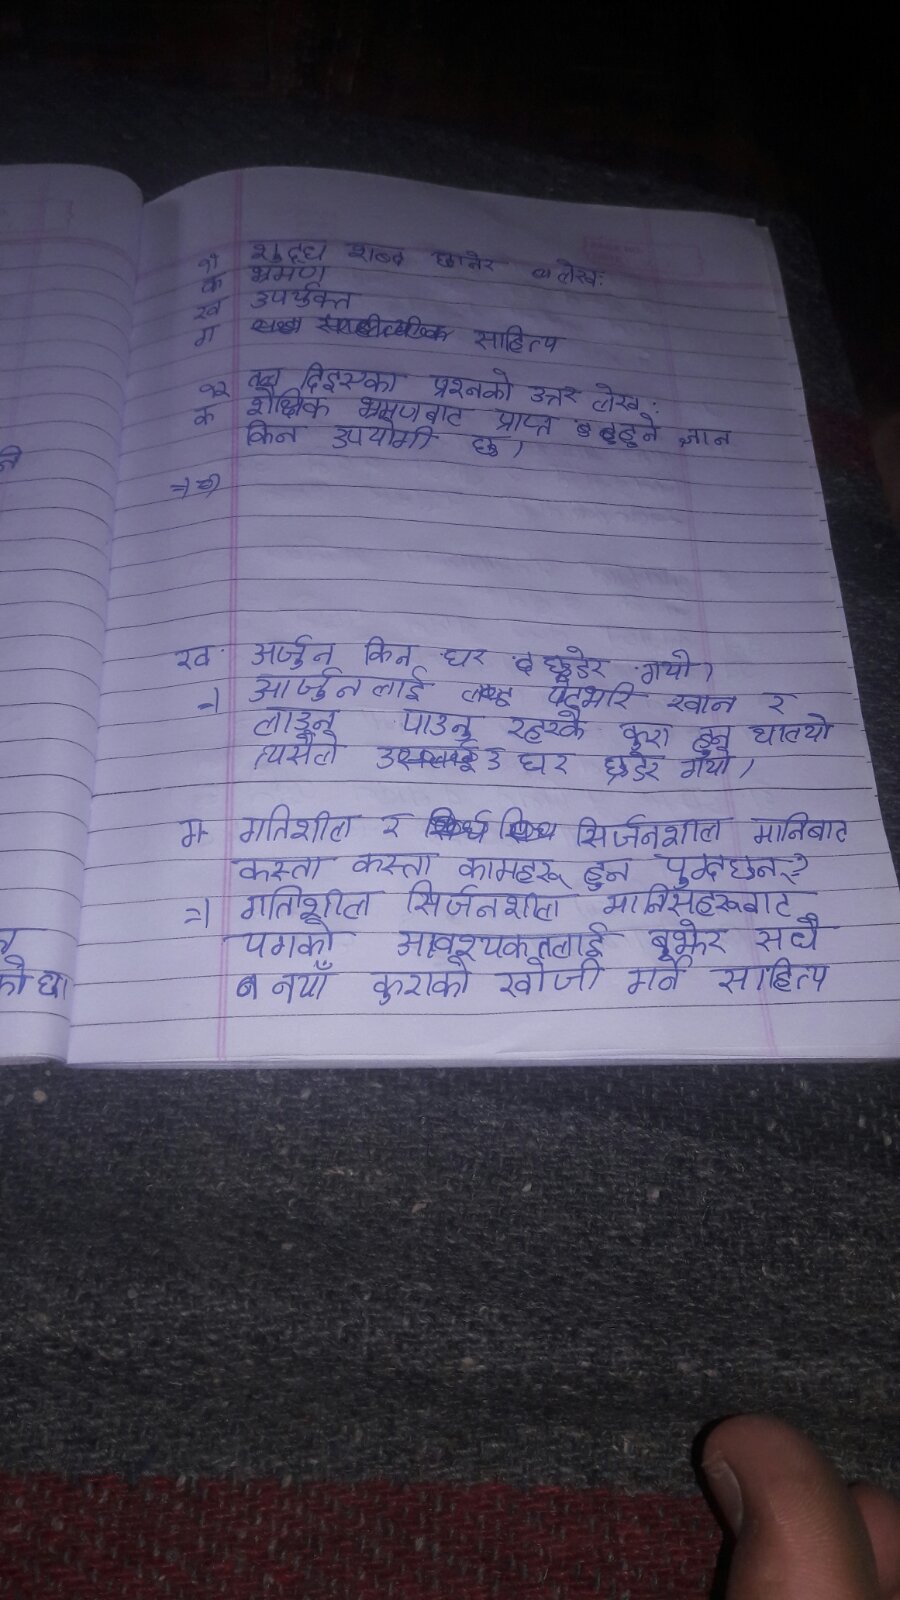 ११ शुद्ध शब्द छानेर लेख:
क भ्रमण
ख उपर्युक्त
ग साहित्य
१२ तल दिइएका प्रश्नको उत्तर लेख:
क शैक्षिक भ्रमणबाट प्राप्त हुने ज्ञान
किन उपयोगी छ।
=)
ख अर्जुन किन घर छुडेर गयो।
=) आर्जुनलाई पेटभरि खान र
लाउनु पाउनु रहरकै कुरा हुनु थाल्यो
त्यसैले उ घर छुडेर गयो।
ग गतिशील र सिर्जनशील मानिबाट
कस्ता कस्ता कामहरू हुन पुग्दछन्?
=) गतिशील सिर्जनशील मानिसहरूबाट
युगको आवश्यकतलाई बुझेर सधै
नयाँ कुराको खोजी गर्ने साहित्य
को